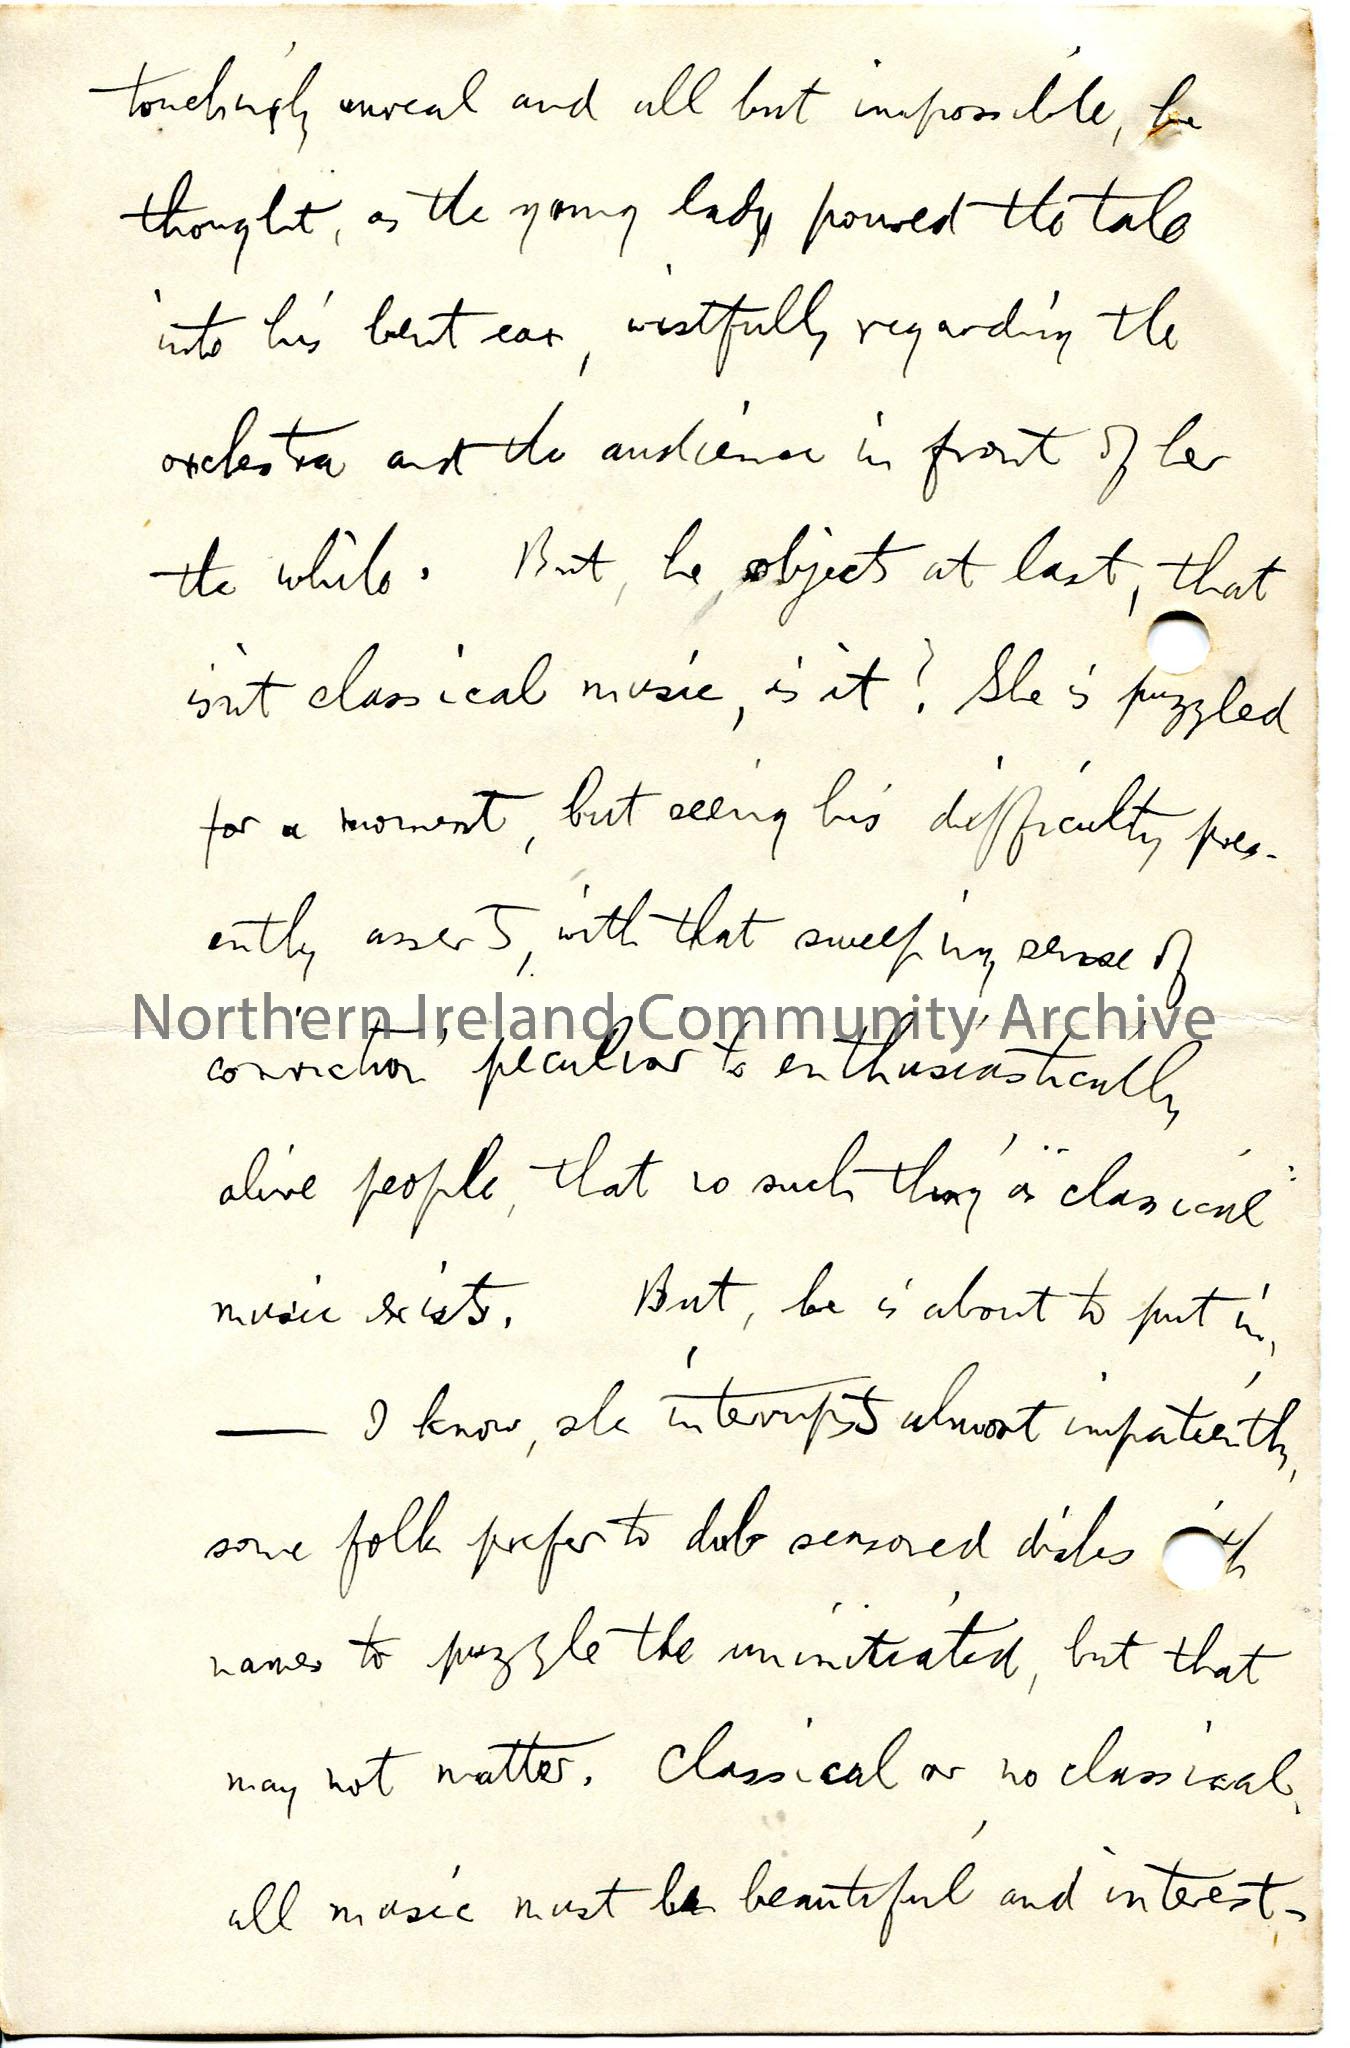 touchingly unreal and all but impossible, he
thought, as the young lady poured the tale
into his bent ear, wistfully regarding the
orchestra and the audience in front of her
the while. But, he objects at last, that
isn't classical music, is it? She is puzzled
for a moment, but seeing his difficulty pres-
ently asserts, with that sweeping sense of
Northern Ireland Community Archive
conviction peculiar to enthusiastically
alive people, that no such thing as "classical"
music exists. But, he is about to put in,
— I know, she interrupts almost impatiently,
some folk prefer to dub seasoned dishes with
names to puzzle the uninitiated, but that
may not matter. Classical or no classical,
all music must be beautiful and interest-